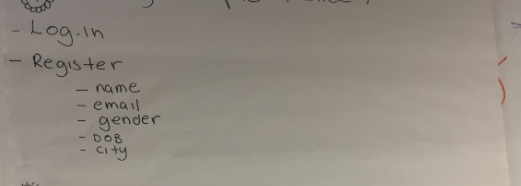 - Log-in
- Register
- name
- email
- gender
- DOB
- City